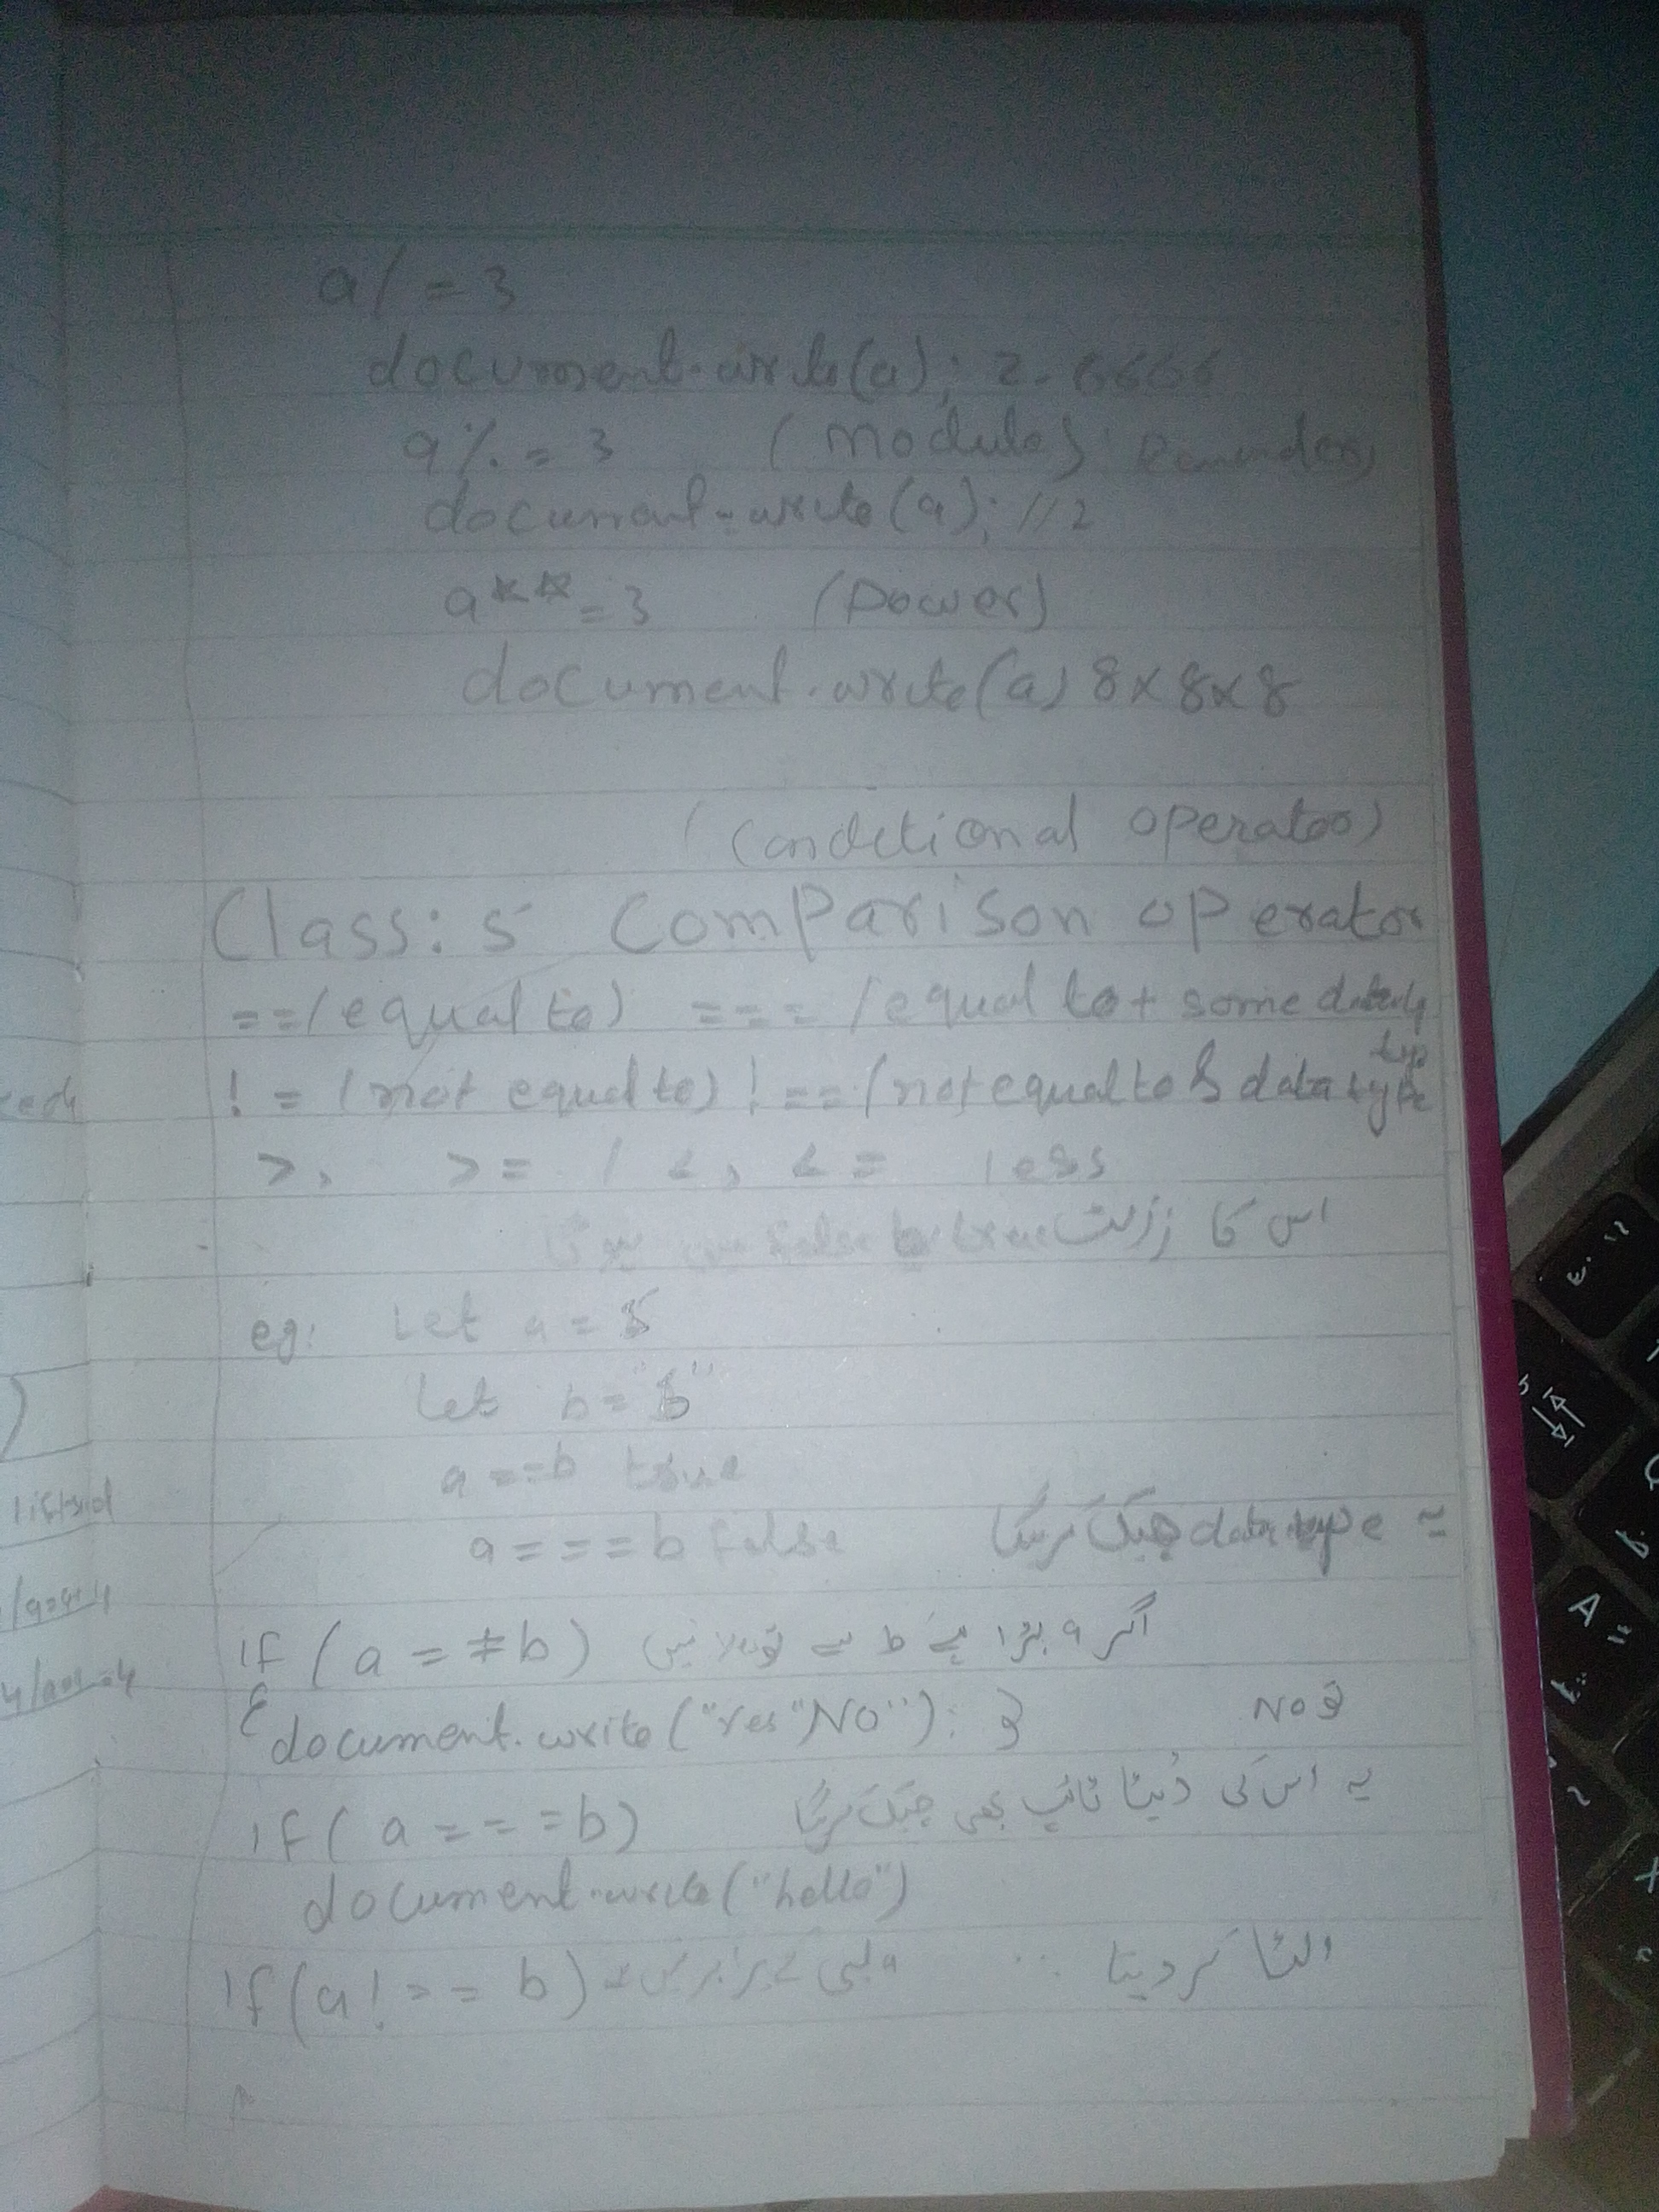 a/=3
document.write(a); 2.6666
a%=3 (modules
document.write(a); //2
a**=3 (Power)
document.write(a) 8x8x8
(Conditional operator)
Class: 5 Comparison operator
==/equal to) === /equal to+
type
!= (not equal to) !== (not equal to & data type
>, >= / <, <= less
اس کا
eg: Let a = 5
Let b = "5"
a==b true
a===b false data type چیک کریگا
if (a = b) اگر a بڑا ہے b سے
{ document.write("Yes" "No"); } تو No
if( a === b) یہ اس کی ڈیٹا ٹائپ بھی چیک کریگا
document.write("hello")
if(a!== b) الٹا کر دیتا
lislsid